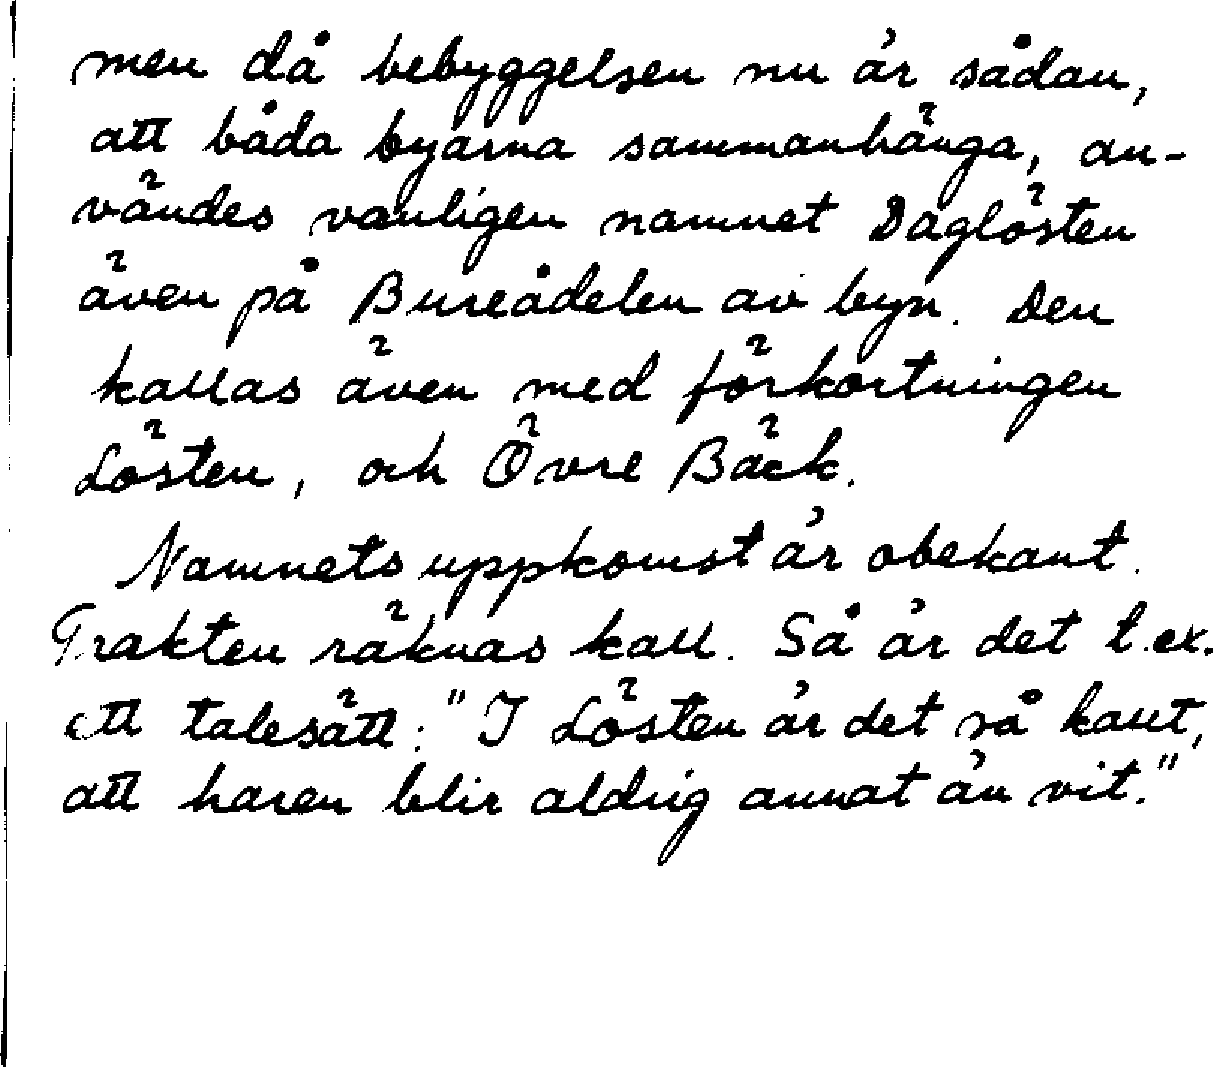 men då bebyggelsen nu är sådan,
att båda byarna sammanhänga, an-
vändes vanligen namnet Daglösten
även på Bureådelen av byn. Den
kallas även med förkortningen
Lösten, och Övre Bäck.
Namnets uppkomst är obekant.
Trakten räknas kall. Så är det t.ex.
ett talesätt: "I Lösten är det så kallt,
att haren blir aldrig annat än vit."